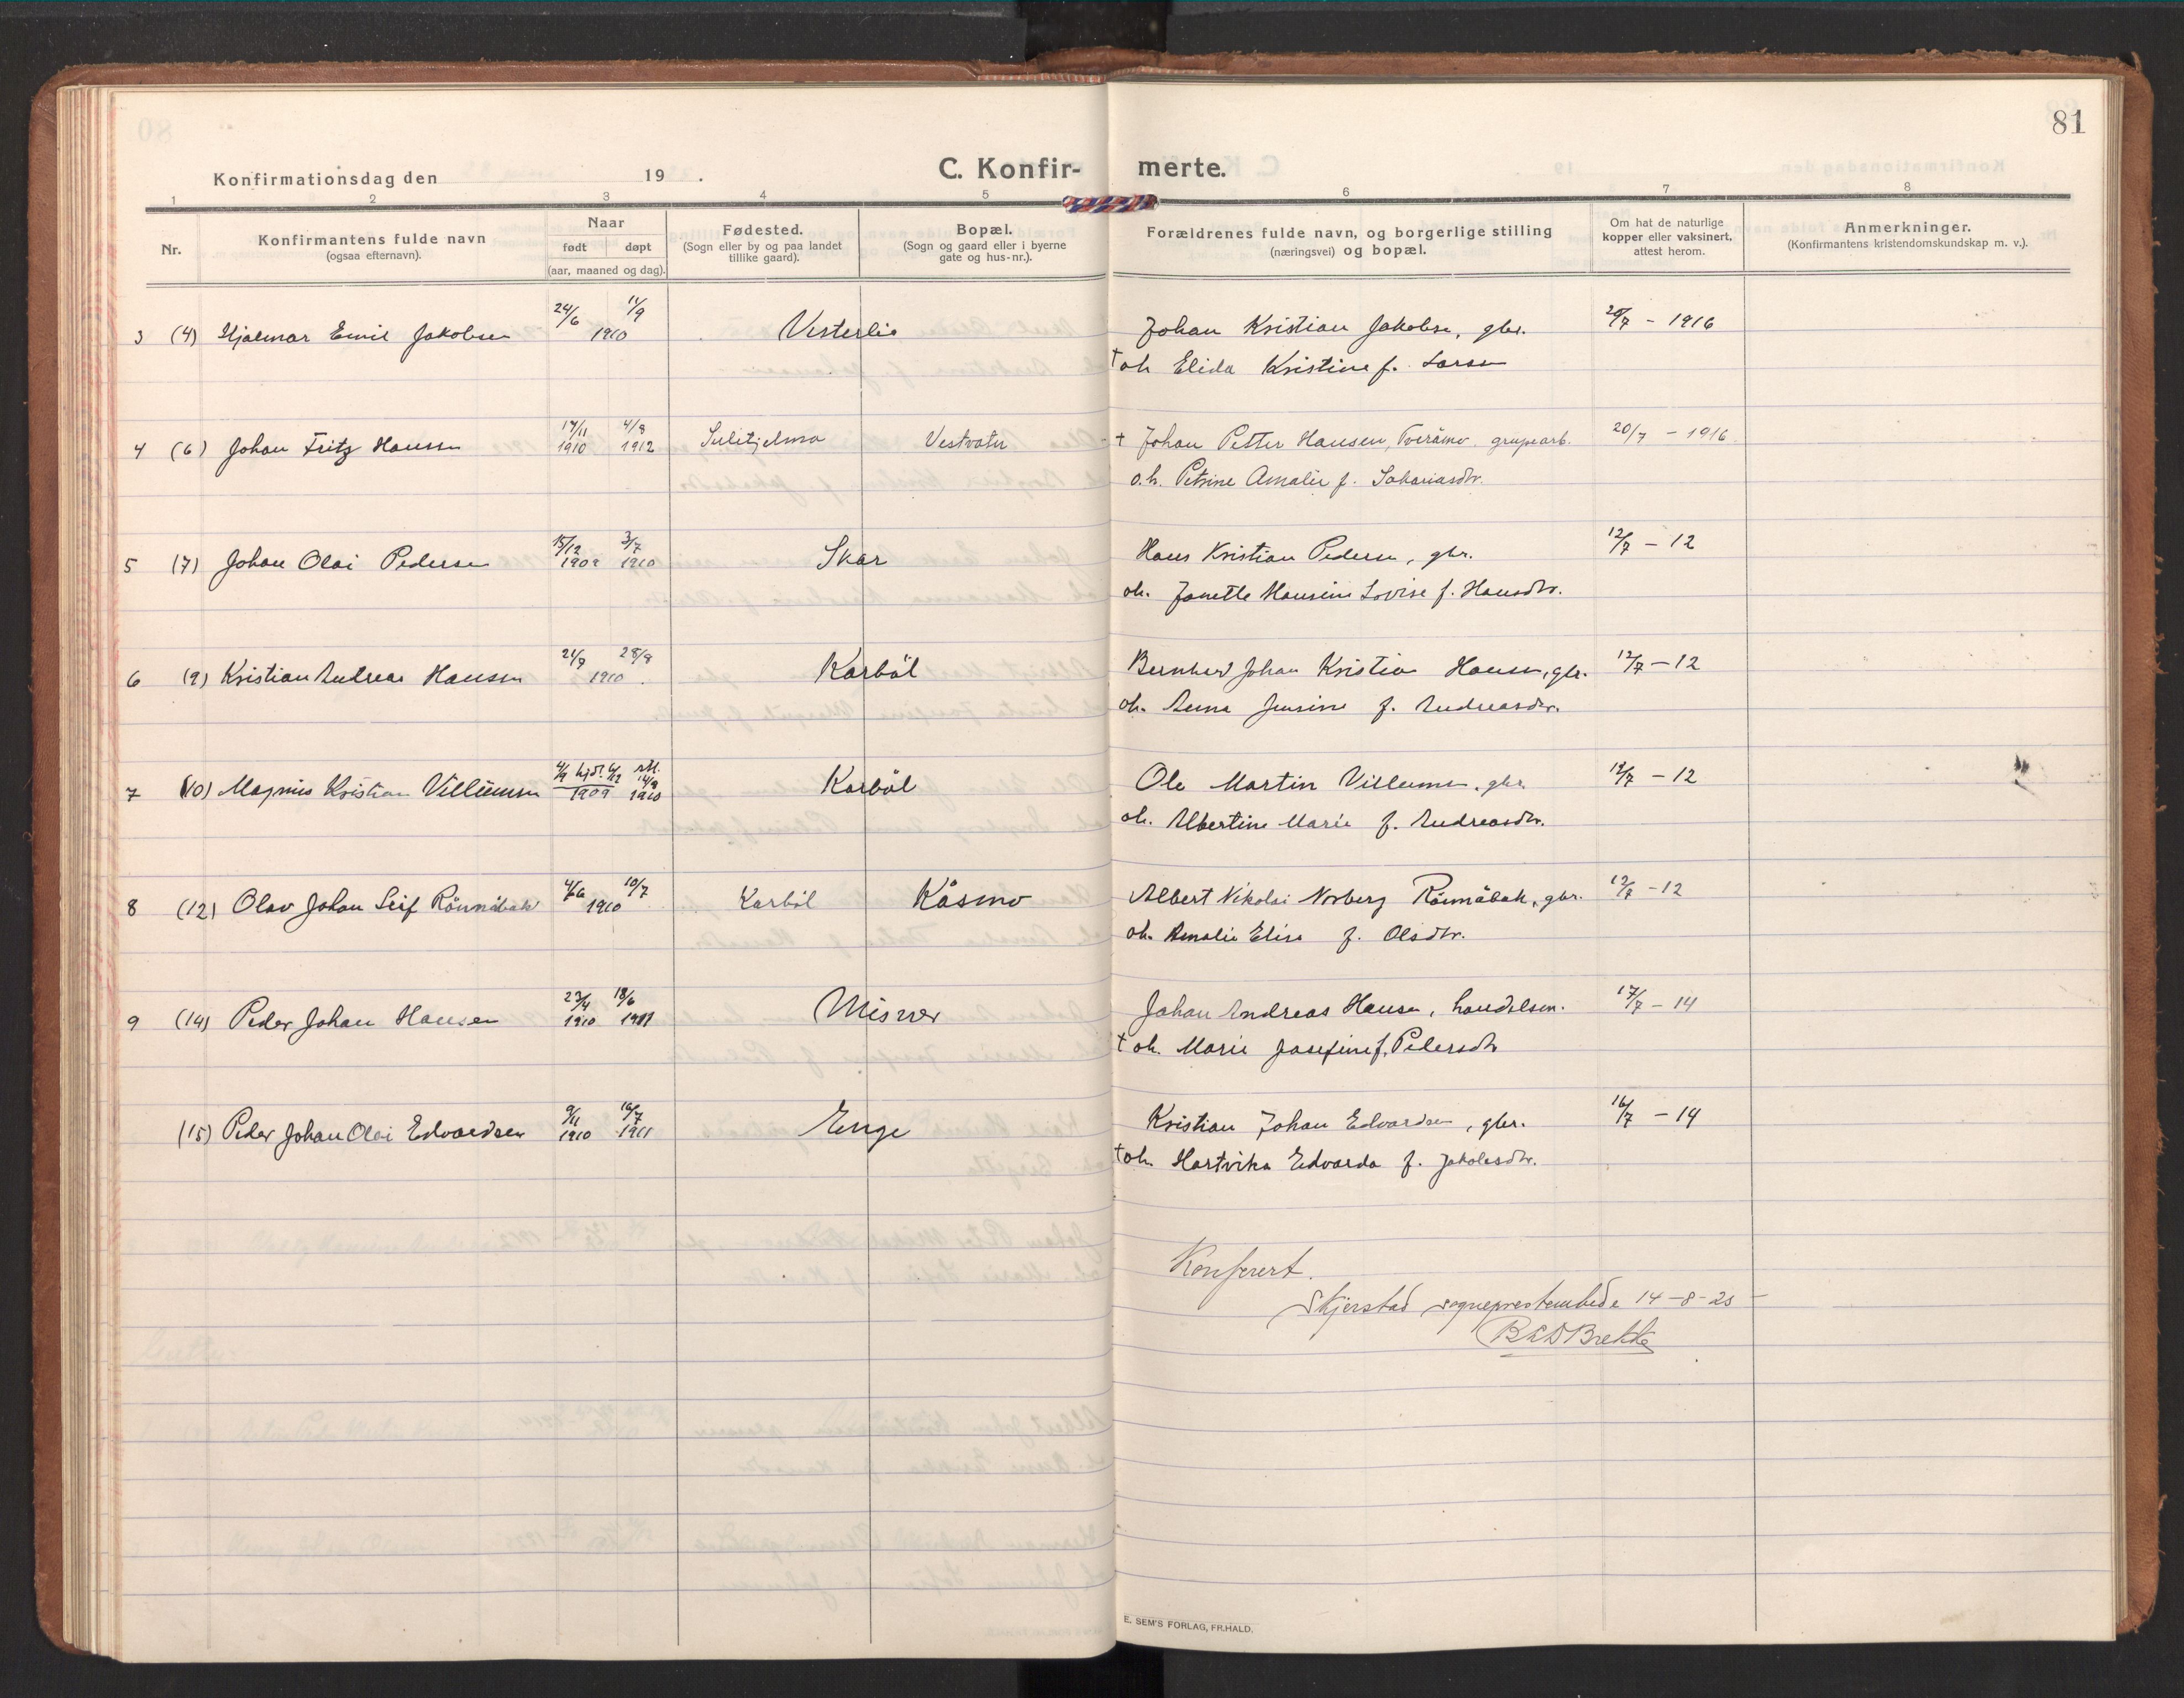 81
Konfirmationsdag den 19 .
C. Konfir- merte.
1 2 3 4 5 6 7 8
Nr.
Konfirmantens fulde navn
(ogsaa efternavn).
Naar
født døpt
(aar, maaned og dag).
Fødested.
(Sogn eller by og paa landet
tillike gaard).
Bopæl.
(Sogn og gaard eller i byerne
gate og hus-nr.).
Forældrenes fulde navn, og borgerlige stilling
(næringsvei) og bopæl.
Om hat de naturlige
kopper eller vaksinert,
attest herom.
Anmerkninger.
(Konfirmantens kristendomskundskap m. v.).
3 (4) Hjalmar Emil Jakobsen 24/6 11/9 1910 Vesterlie Johan Kristian Jakobsen, gbr. 20/7 - 1916
† oh Elida Kristine f. Larsen
4 (6) Johan Fritz Hansen 17/11 1910 4/8 1912 Sulitjelma Vestvatn † Johan Petter Hansen, Tveråmo grupearb. 20/7 - 1916
o.h. Petrine Amalie f. Sakariasdtr.
5 (7) Johan Olai Pedersen 15/12 1909 3/7 1910 Skar Hans Kristian Pedersen, gbr. 12/7 - 12
oh. Janette Hansine Lovise f. Hansdtr.
6 (9) Kristian Andreas Hansen 24/7 28/8 1910 Karbøl Bernhard Johan Kristian Hansen, gbr. 12/7 - 12
oh. Anna Jensine f. Andreasdtr.
7 (10) Magnus Kristian Villumsen 1909 1910 Karbøl Ole Martin Villumsen, gbr. 12/7 - 12
oh. Albertine Marie f. Andreasdtr.
8 (12) Olav Johan Leif Rönnåbakk 4/6 10/7 1910 Karbøl Kåsmo Albert Nikolai Norberg Rönnåbak, gbr. 12/7 - 12
oh. Amalie Elise f. Olsdtr.
9 (14) Peder Johan Hansen 23/4 1910 18/6 1911 Misvær Johan Andreas Hansen, handelsm. 17/7 - 14
† oh. Marie Josefine f. Pedersdtr
(15) Peder Johan Olai Edvardsen 9/11 1910 16/7 1911 Enge Kristian Johan Edvardsen, gbr. 16/7 - 14
† oh. Hartvika Edvarda f. Jakobsdtr.
Konferert.
Skjerstad sogneprestembede 14-8-25
Brekke
E. SEM'S FORLAG, FR.HALD.